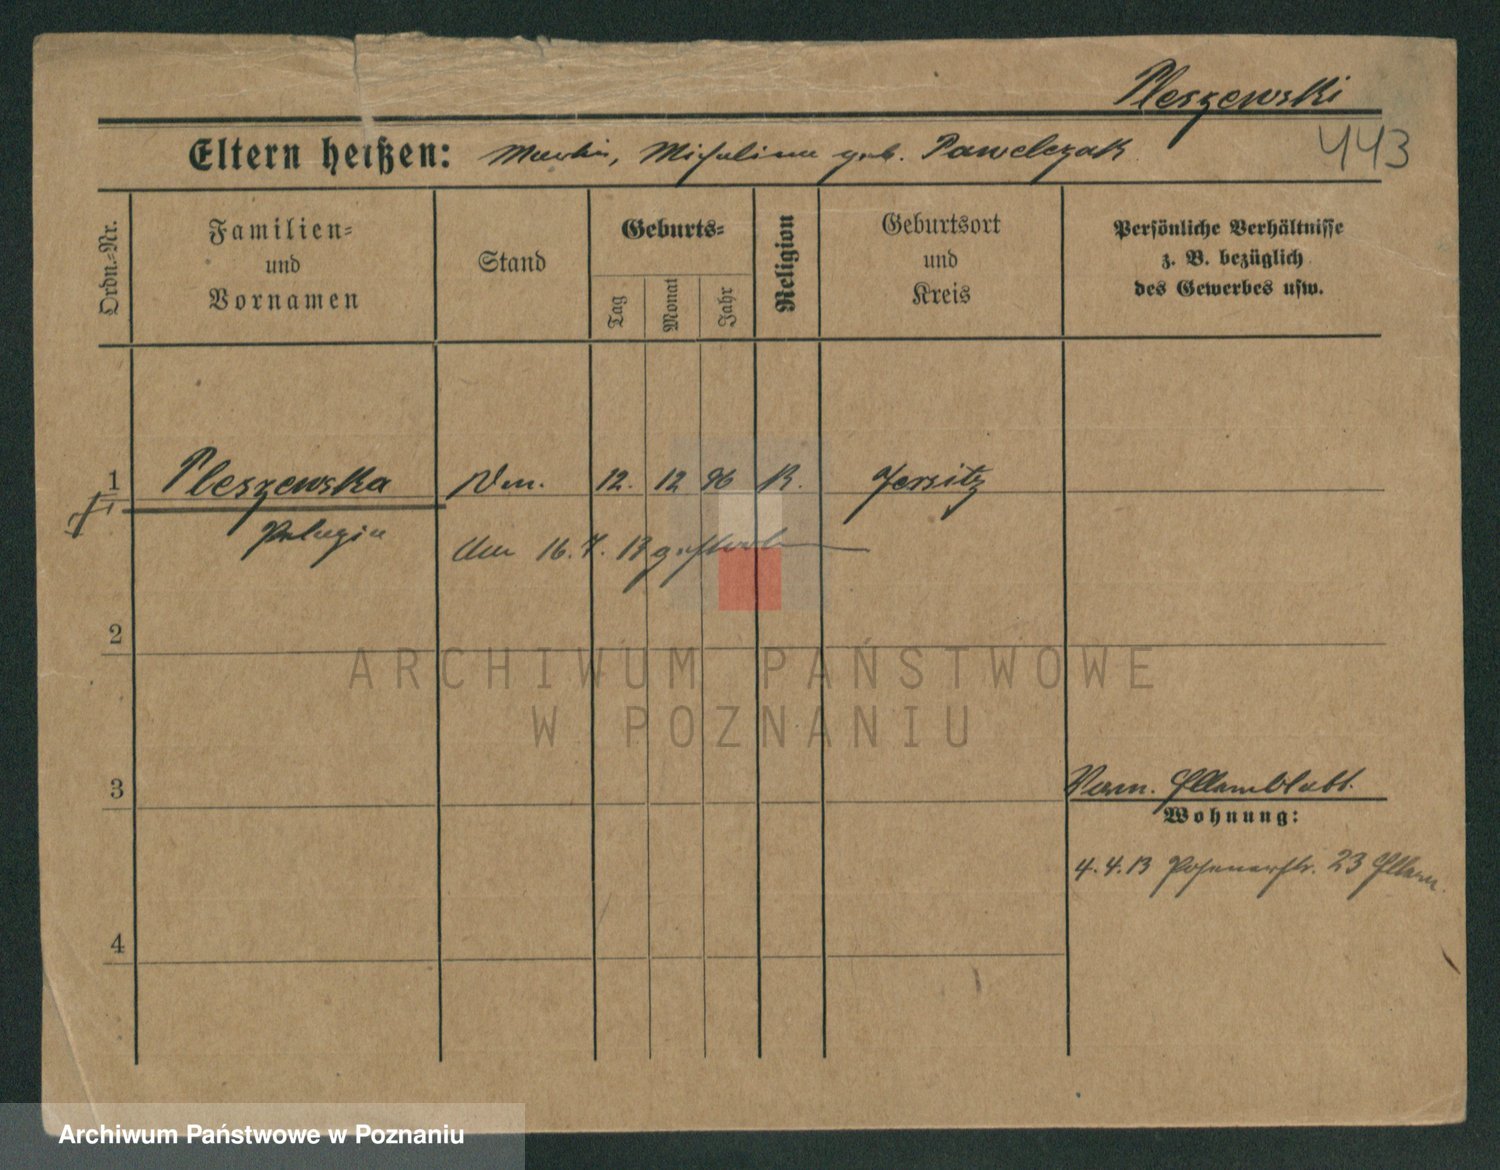 Pleszewski
443
Eltern heißen: Martin, Michalina geb. Pawelczak
Ordn.-Nr.
Familien-
und
Vornamen
Stand
Geburts-
Tag
Monat
Jahr
Religion
Geburtsort
und
Kreis
Persönliche Verhältnisse
z. B. bezüglich
des Gewerbes usw.
1 Pleszewska 12. 12 96 K. Jersitz
Pelagia
16. 7. 13 gestorben
2
ARCHIWUM PAŃSTWOWE
W POZNANIU
3
Wohnung:
4.4.13 Posenerstr. 23
4
Archiwum Państwowe w Poznaniu